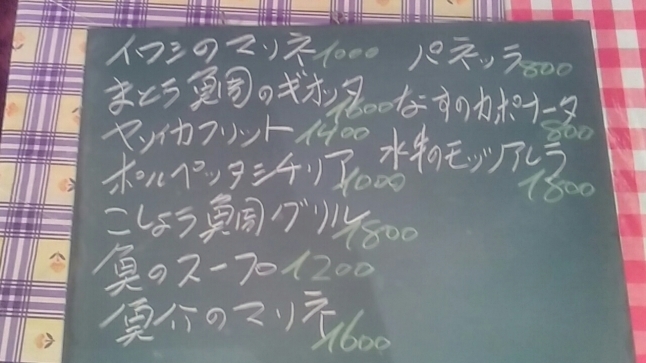 イワシのマリネ 1000
まとう鯛のギオッタ 1600
ヤリイカフリット 1400
ポルペッタシチリア 1000
こしょう鯛グリル 1800
魚のスープ 1200
魚介のマリネ 1600
パネッラ 800
なすのカポナータ 800
水牛のモッツアレラ 1800